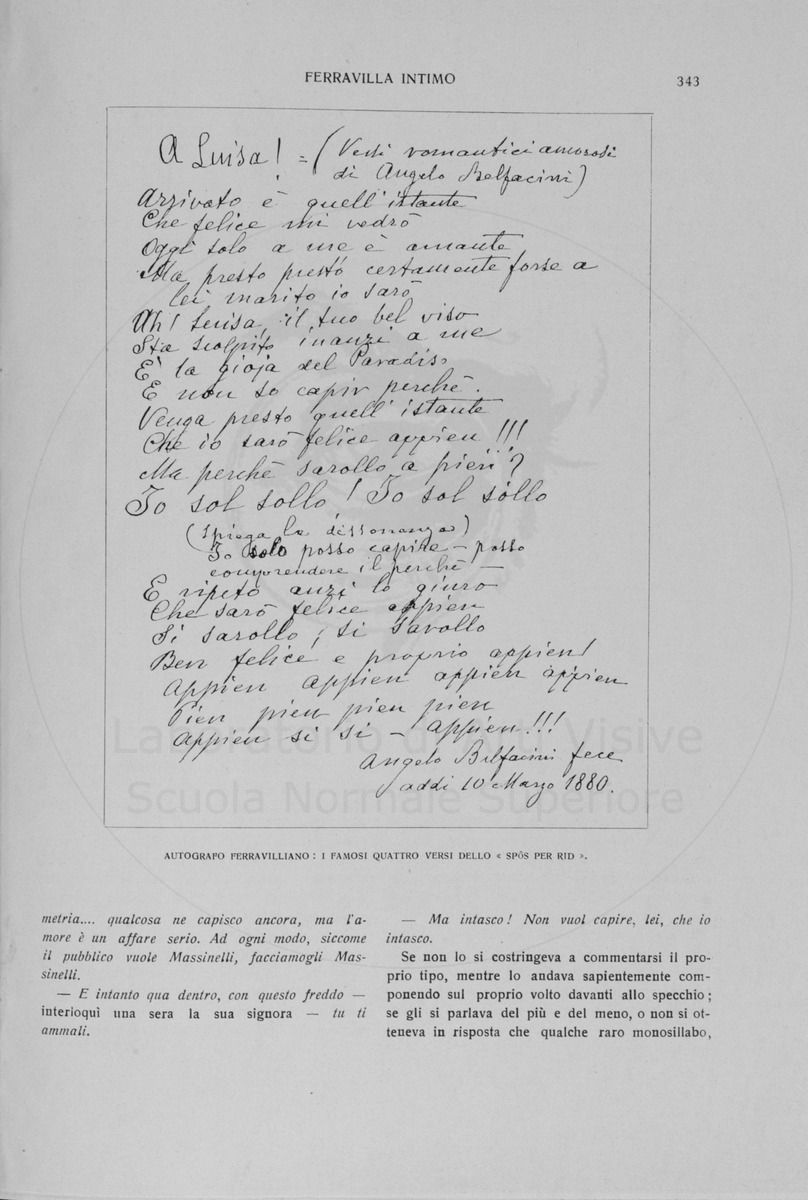 FERRAVILLA INTIMO
343
A Luisa! = (Versi romantici amorosi
di Angelo Belfacini)
Arrivato è quell'istante
Che felice mi vedrò
Oggi solo a me è amante
Ma presto presto certamente forse a
lei marito io sarò
Ah! Luisa, il tuo bel viso
Sta scolpito inanzi a me
È la gioja del Paradiso
E non so capir perchè.
Venga presto quell'istante
Che io sarò felice appien!!!
Ma perchè sarollo a pien?
Io sol sollo! Io sol sollo
(Spiega la dissonanza)
Io solo posso capire – posso
comprendere il perchè –
E ripeto anzi lo giuro
Che sarò felice appien
Si sarollo, si sarollo
Ben felice e proprio appien!
Appien appien appien appien
Pien pien pien pien
Appien si si – appien!!!
Angelo Belfacini fece
addi 10 Marzo 1880.
Laboratorio di Arti Visive
Scuola Normale Superiore
AUTOGRAFO FERRAVILLIANO : I FAMOSI QUATTRO VERSI DELLO « SPÔS PER RID ».
metria.... qualcosa ne capisco ancora, ma l'a-
more è un affare serio. Ad ogni modo, siccome
il pubblico vuole Massinelli, facciamogli Mas-
sinelli.
— E intanto qua dentro, con questo freddo —
interloquì una sera la sua signora — tu ti
ammali.
— Ma intasco! Non vuol capire, lei, che io
intasco.
Se non lo si costringeva a commentarsi il pro-
prio tipo, mentre lo andava sapientemente com-
ponendo sul proprio volto davanti allo specchio ;
se gli si parlava del più e del meno, o non si ot-
teneva in risposta che qualche raro monosillabo,